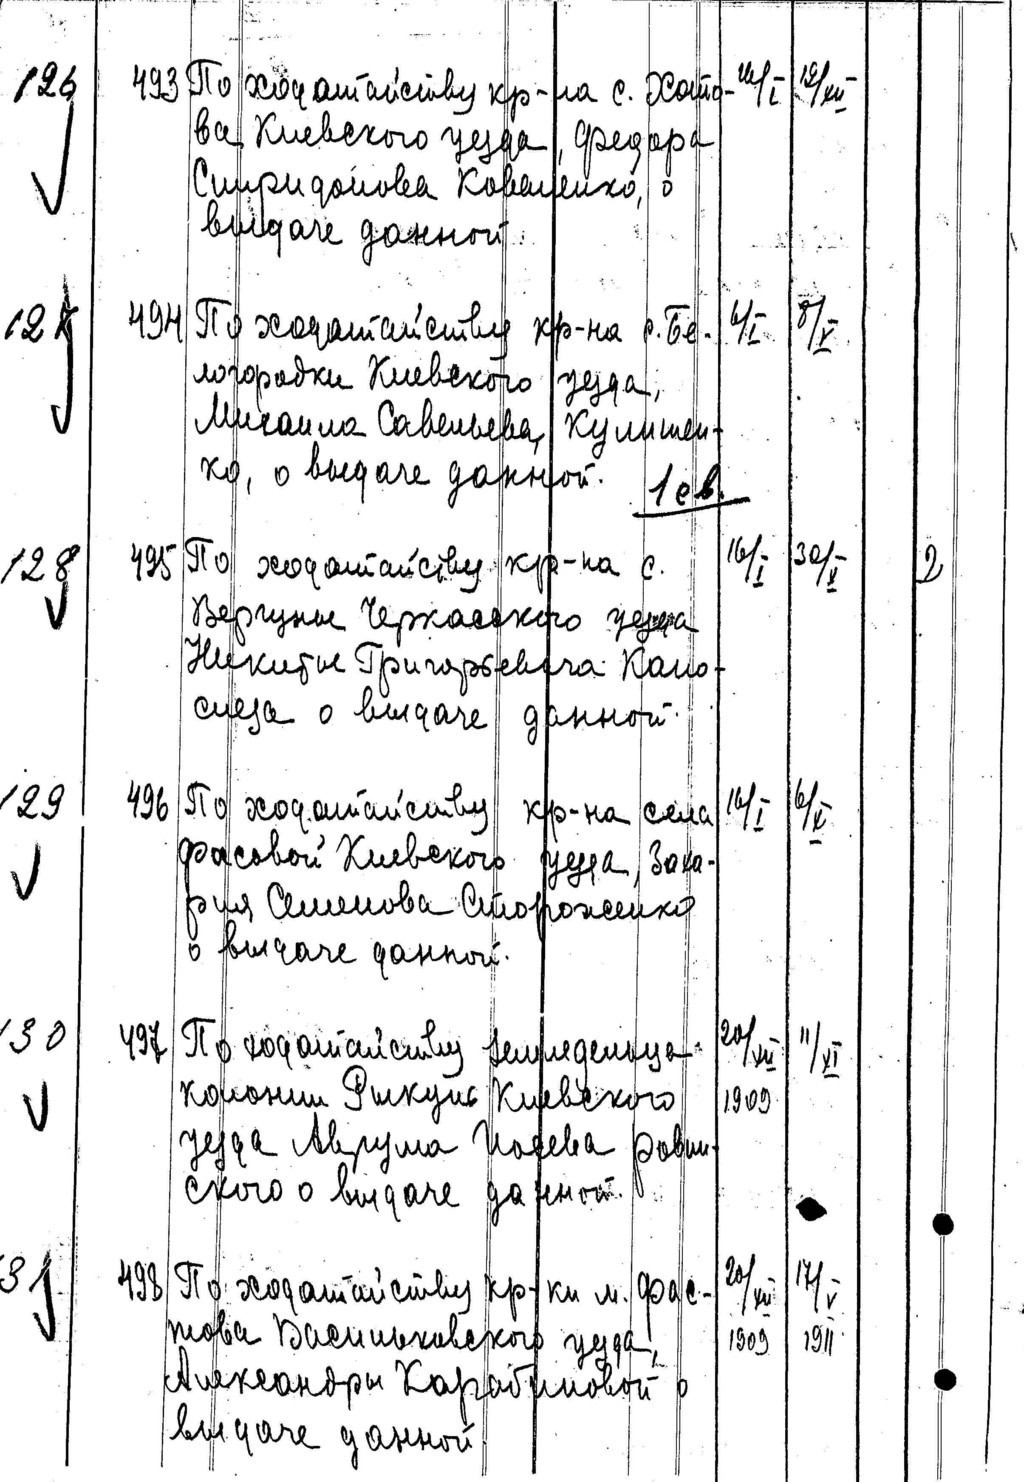 126 493 По ходатайству кр-на с. Хото- 14/I 12/XII
ва Киевского уезда, Федора
Спиридонова Коваленко, о
выдаче данной.
127 494 По ходатайству кр-на с. Бе- 4/I 8/V
логородки Киевского уезда,
Михаила Савельева Кулишен-
ко, о выдаче данной. 1 св.
128 495 По ходатайству кр-на с. 16/I 30/X 2
Вергуны Черкасского уезда
Никиты Григорьевича Кано-
о выдаче данной.
129 496 По ходатайству кр-на села 16/I 6/X
Фасовой Киевского уезда, Заха-
рия Семенова Стороженко
о выдаче данной.
130 497 По ходатайству земледельца 20/XII 11/XI
колонии Рыкунь Киевского 1909
уезда Аврума Иосева Ровин-
ского о выдаче данной.
131 498 По ходатайству кр-ки м. Фас- 20/XII 17/V
това Васильковского уезда, 1909 1911
Александры Карабиновой о
выдаче данной.